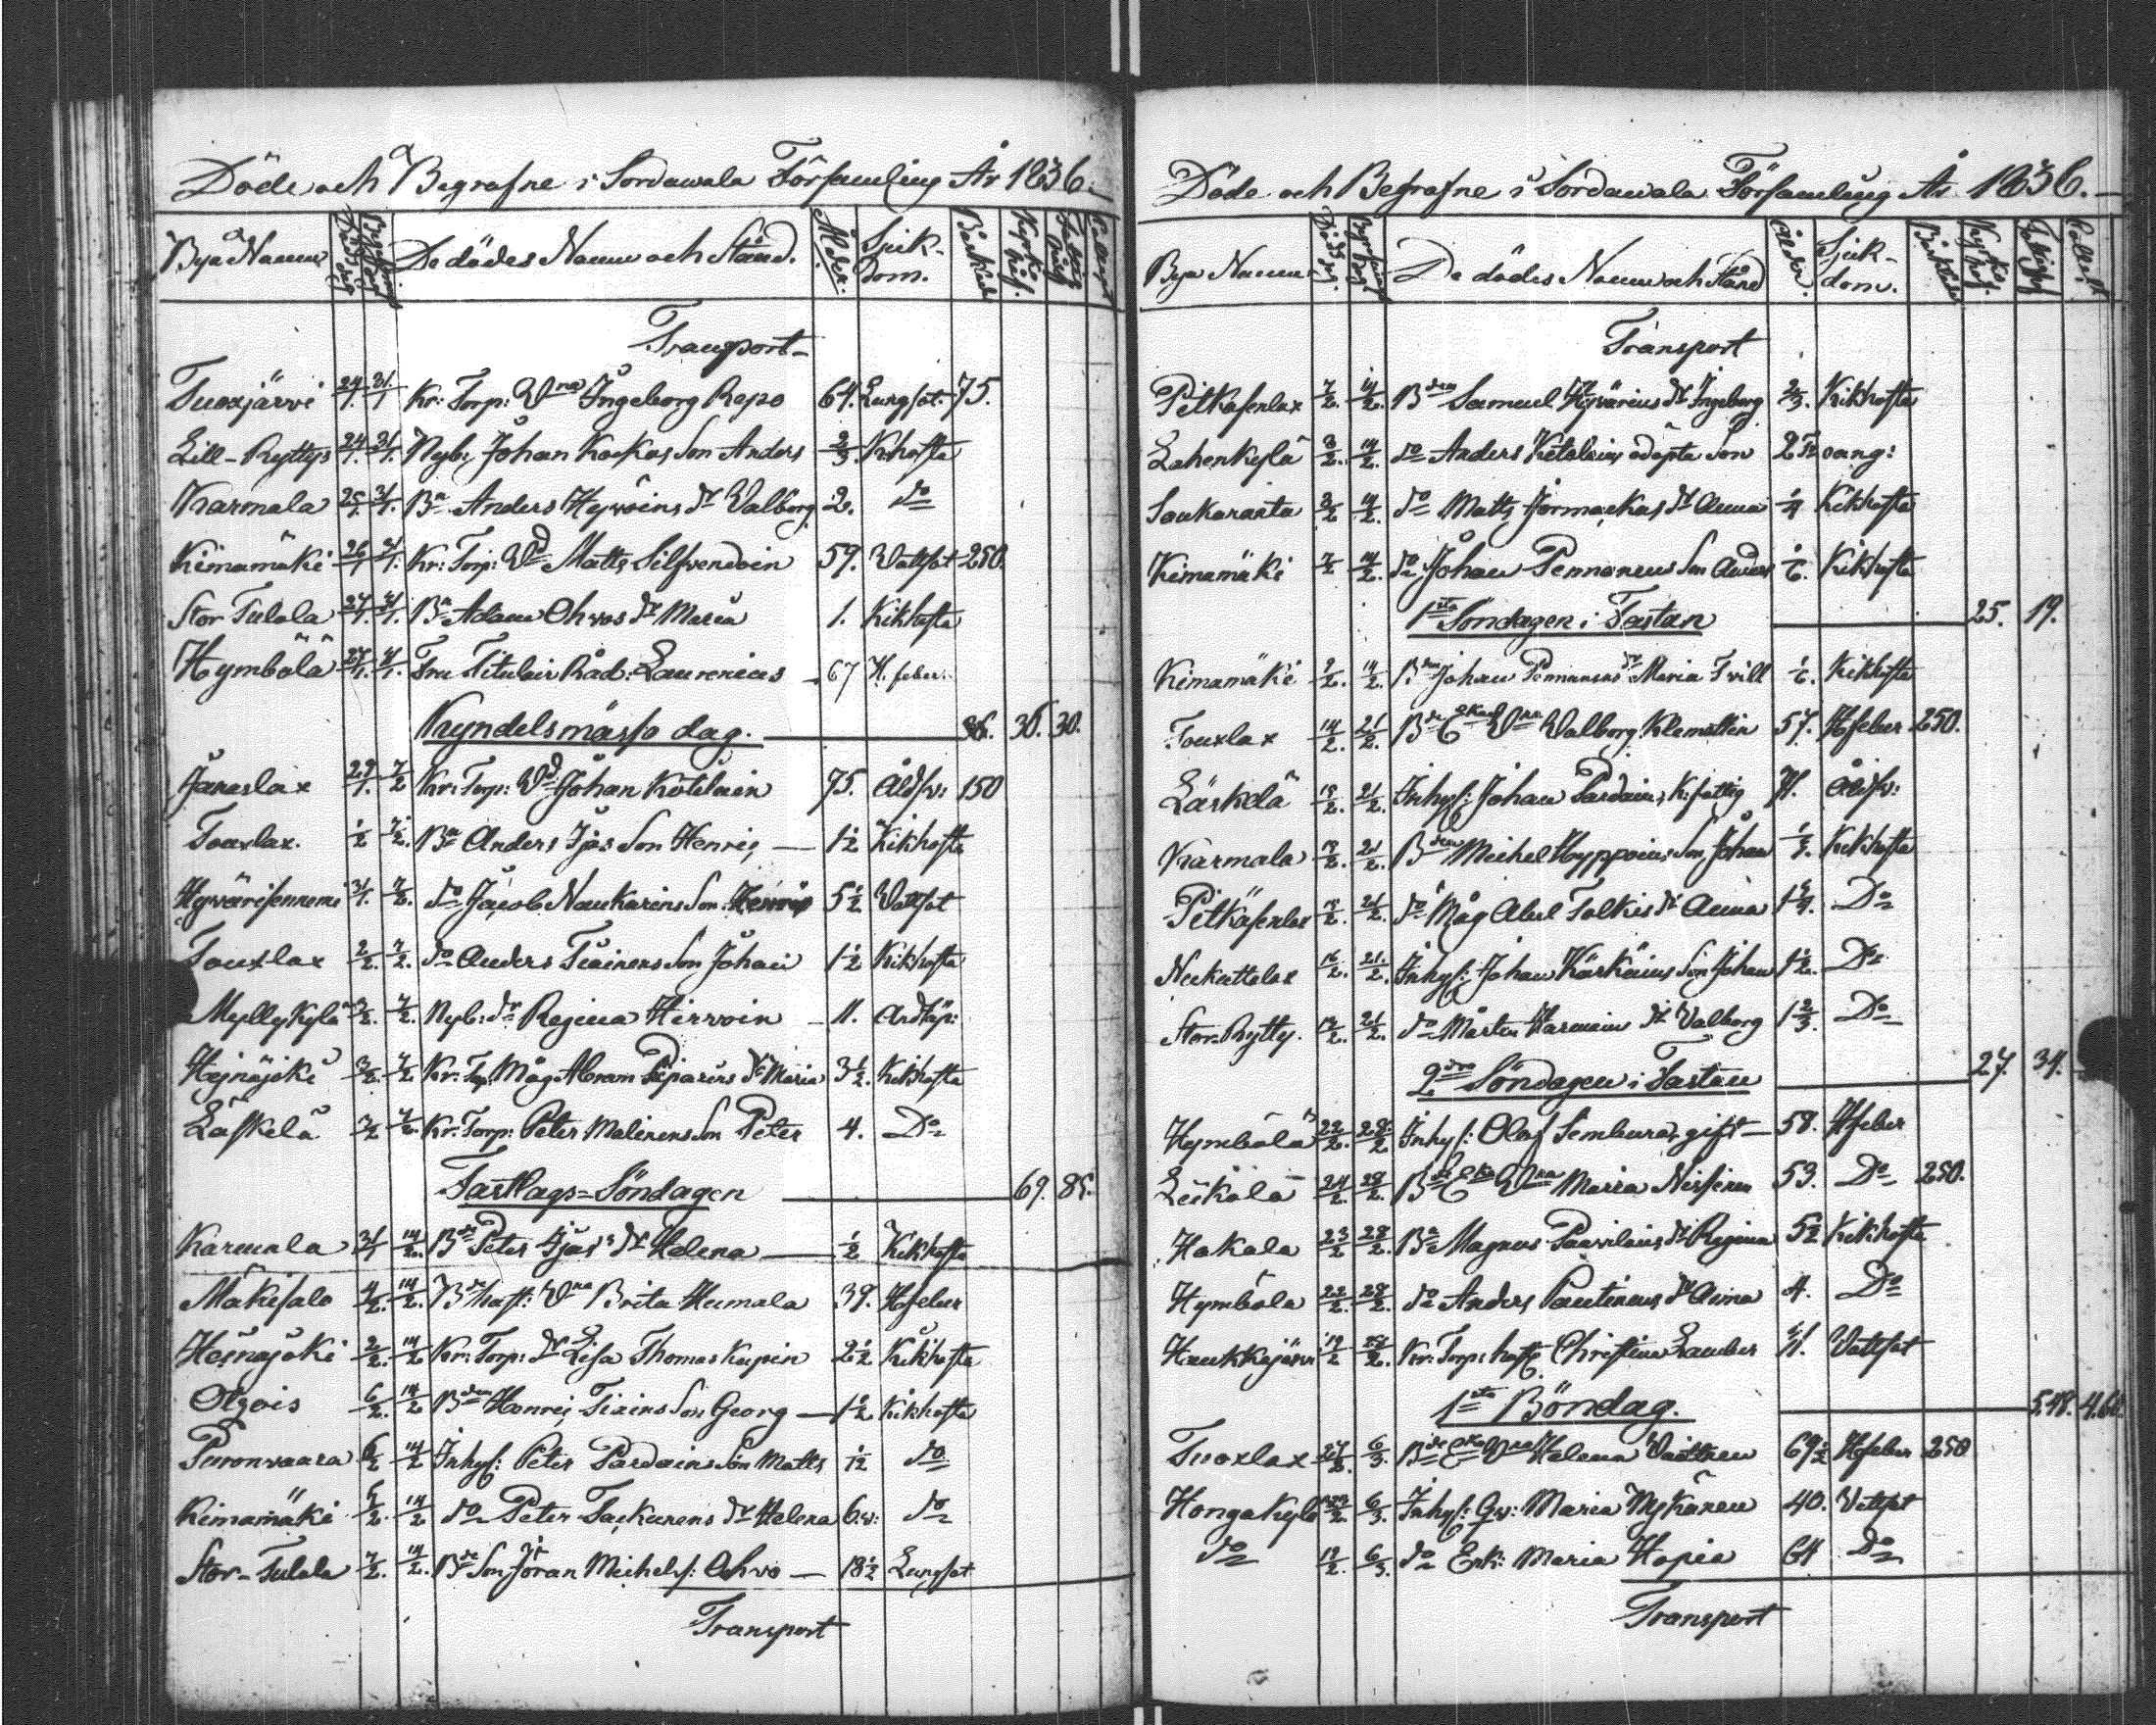 Döde och Begrafne i Sordawala Församling År 1836.
Bya Namn Döds dag Begrafnings dag De dödes Namn och Stånd. Ålder. Sjuk-dom. Bårkläde Kyrko håf.
Transport
Tuoxjärvi 24/1. 31/1 Kr: Torp: Wna Ingeborg Repo 64. Lungsot. 75.
Lill-Ryttys 24/1. 31/1. Nyb: Johan Koskas Son Anders 2/3. Kikhosta
Karmala 25/1. 31/1. Bn Anders Hywöins dr Valborg 2. do
Kimamäki 26/1 31/1. Kr: Torp: Wd Matts Silfvendoin 59. Vattsot 250.
Stor Tulola 27/1. 31/1. Bn Adam Ohvos dr Maria 1. Kikhosta
Hymbölä 27/1. 31/1. Fru Titulair Råd: Laurenius 67 H. feber
Kyndelsmässo dag. 36. 36. 30.
Janaslax 29/1. 7/2 Kr: Torp: Wd Johan Kotilain 75. Åldsv: 150
Touxlax. 1/2 7/2. Bn Anders Ijäs Son Henric 1 1/2 Kikhosta
Hywärisenniemi 31/1. 7/2. do Jacob Naukarins Son 5 1/2 Vattsot
Touxlax 2/2. 7/2. do Anders Tiainens Son Johan 1 1/2 Kikhosta
Myllykylä 3/2. 7/2. Nyb: dr Regina Hirvoin 11.
Heinäjoki 3/2. 7/2 Kr: Torp. Måg Abram Piiparins dr Maria 3 1/2. Kikhosta
Läskelä 3/2 7/2. Kr: Torp: Peter Malinens Son Peter 4. Do
Fastlags-Söndagen 69. 85.
Karmala 31/1 14/2. Bde Peter Ijäs' dr Helena 1/2 Kikhosta
Mäkisalo 4/2. 14/2. Bde hust: Wna Brita Humala 39. Hfeber
Heinäjoki 2/2. 14/2 Kr: Torp: dr Lisa Thomas Kupin 2 1/2 Kikhosta
Otzois 6/2. 14/2 Bden Henric Tiains Son Georg 1 1/2 Kikhosta
Puronvaara 6/2 14/2 Inhys: Peter Pardains Son Matts 1/2 do
Kimamäki 6/2. 14/2 do Peter dr Helena 6 v: do
Stor-Tulola 7/2. 14/2. Bde Son Jöran Michels: Ohvo 18 1/2 Lungsot
Transport
Döde och Begrafne i Sordawala Församling År 1836.
Bya Namn Döds dag. Begrafnings Dag De dödes Namn och Stånd Ålder. Sjuk-dom. Bårkläde Kyrko håf. Collect
Transport
Pitkäsenlax 7/2. 14/2. Bden Samuel Hyvärins dr Ingeborg 2/3. Kikhosta
Lahenkylä 8/2. 14/2. do Anders Ketolains adopta Son 2
Soukaranta 8/2 14/2. do Matts Jormackas dr Anna 1/4 Kikhosta
Kimamäki 7/2 14/2. do Johan Pennanens Son Anders 1/6. Kikhosta
1sta Söndagen i Fastan 25. 19.
Kimamäki 9/2. 14/2. Bden Johan Pennanens dr Maria Tvill 1/6. Kikhosta
Touxlax 14/2. 21/2. Bde Wna Valborg Klemettin 57. Hfeber 250.
Läskelä 15/2. 21/2. Inhys: Johan Pardain, K: fattig 71. Åldsv:
Karmala 19/2. 21/2. Bden Michel Hyppöins Son Johan Kikhosta
Pitkäsenlax 21/2. do Måg Abel Tolkis dr Anna Do
Nukuttalax 16/2. 21/2. Inhys: Johan Kärkäins Son Johan 1 1/2. Do
Stor-Rytty. 21/2. do Mårten dr Valborg 1 2/3. Do
2dra Söndagen i Fastan 27. 34.
Hymbölä 22/2. 28/2. Inhys: Olof Sembura, gift 58. Hfeber
Leikälä 24/2. 28/2. Bde Wna Maria Nissinen 53. Do 250.
Hakala 23/2 28/2. Bn Magnus Paavilains dr Regina 5 1/2 Kikhosta
Hymbölä 22/2. 28/2. do Anders Pautinens dr Anna 4. Do
Haukkajärvi 19/2 28/2. Kr: Torp: hust: Christina Lamber 41. Vattsot
1sta Böndag. 5.48. 4.60.
Tuoxlax 27/2. 6/3. Bde Wna Helena Väitkin 69 1/2 Hfeber 250
Hongakylä 6/3. Inhys: Qv: Maria Mykänen 40. Vattsot
do 19/2. 6/3. do Enk: Maria Hopia 64 Do
Transport